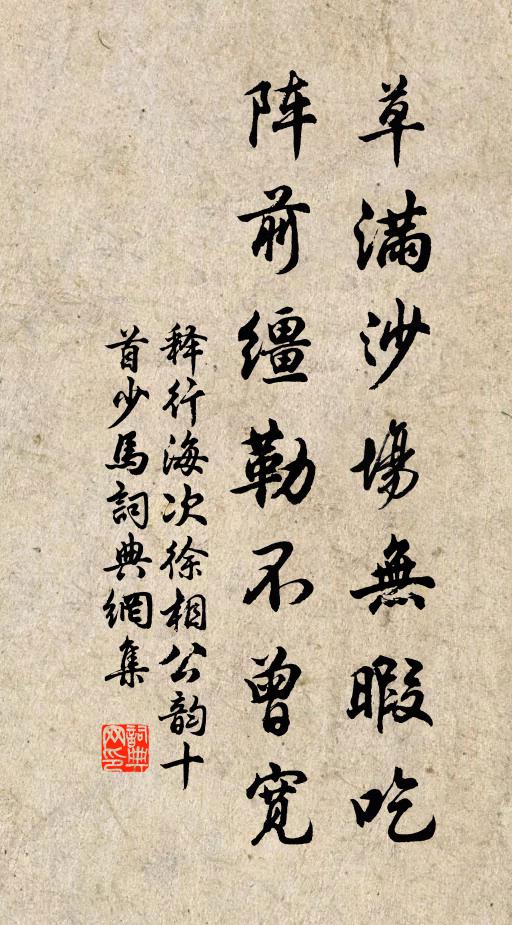 草滿沙場無暇吃
阵前缰勒不曾寬
释行海次徐相公韵十
首少馬詞典網集
詞典網印